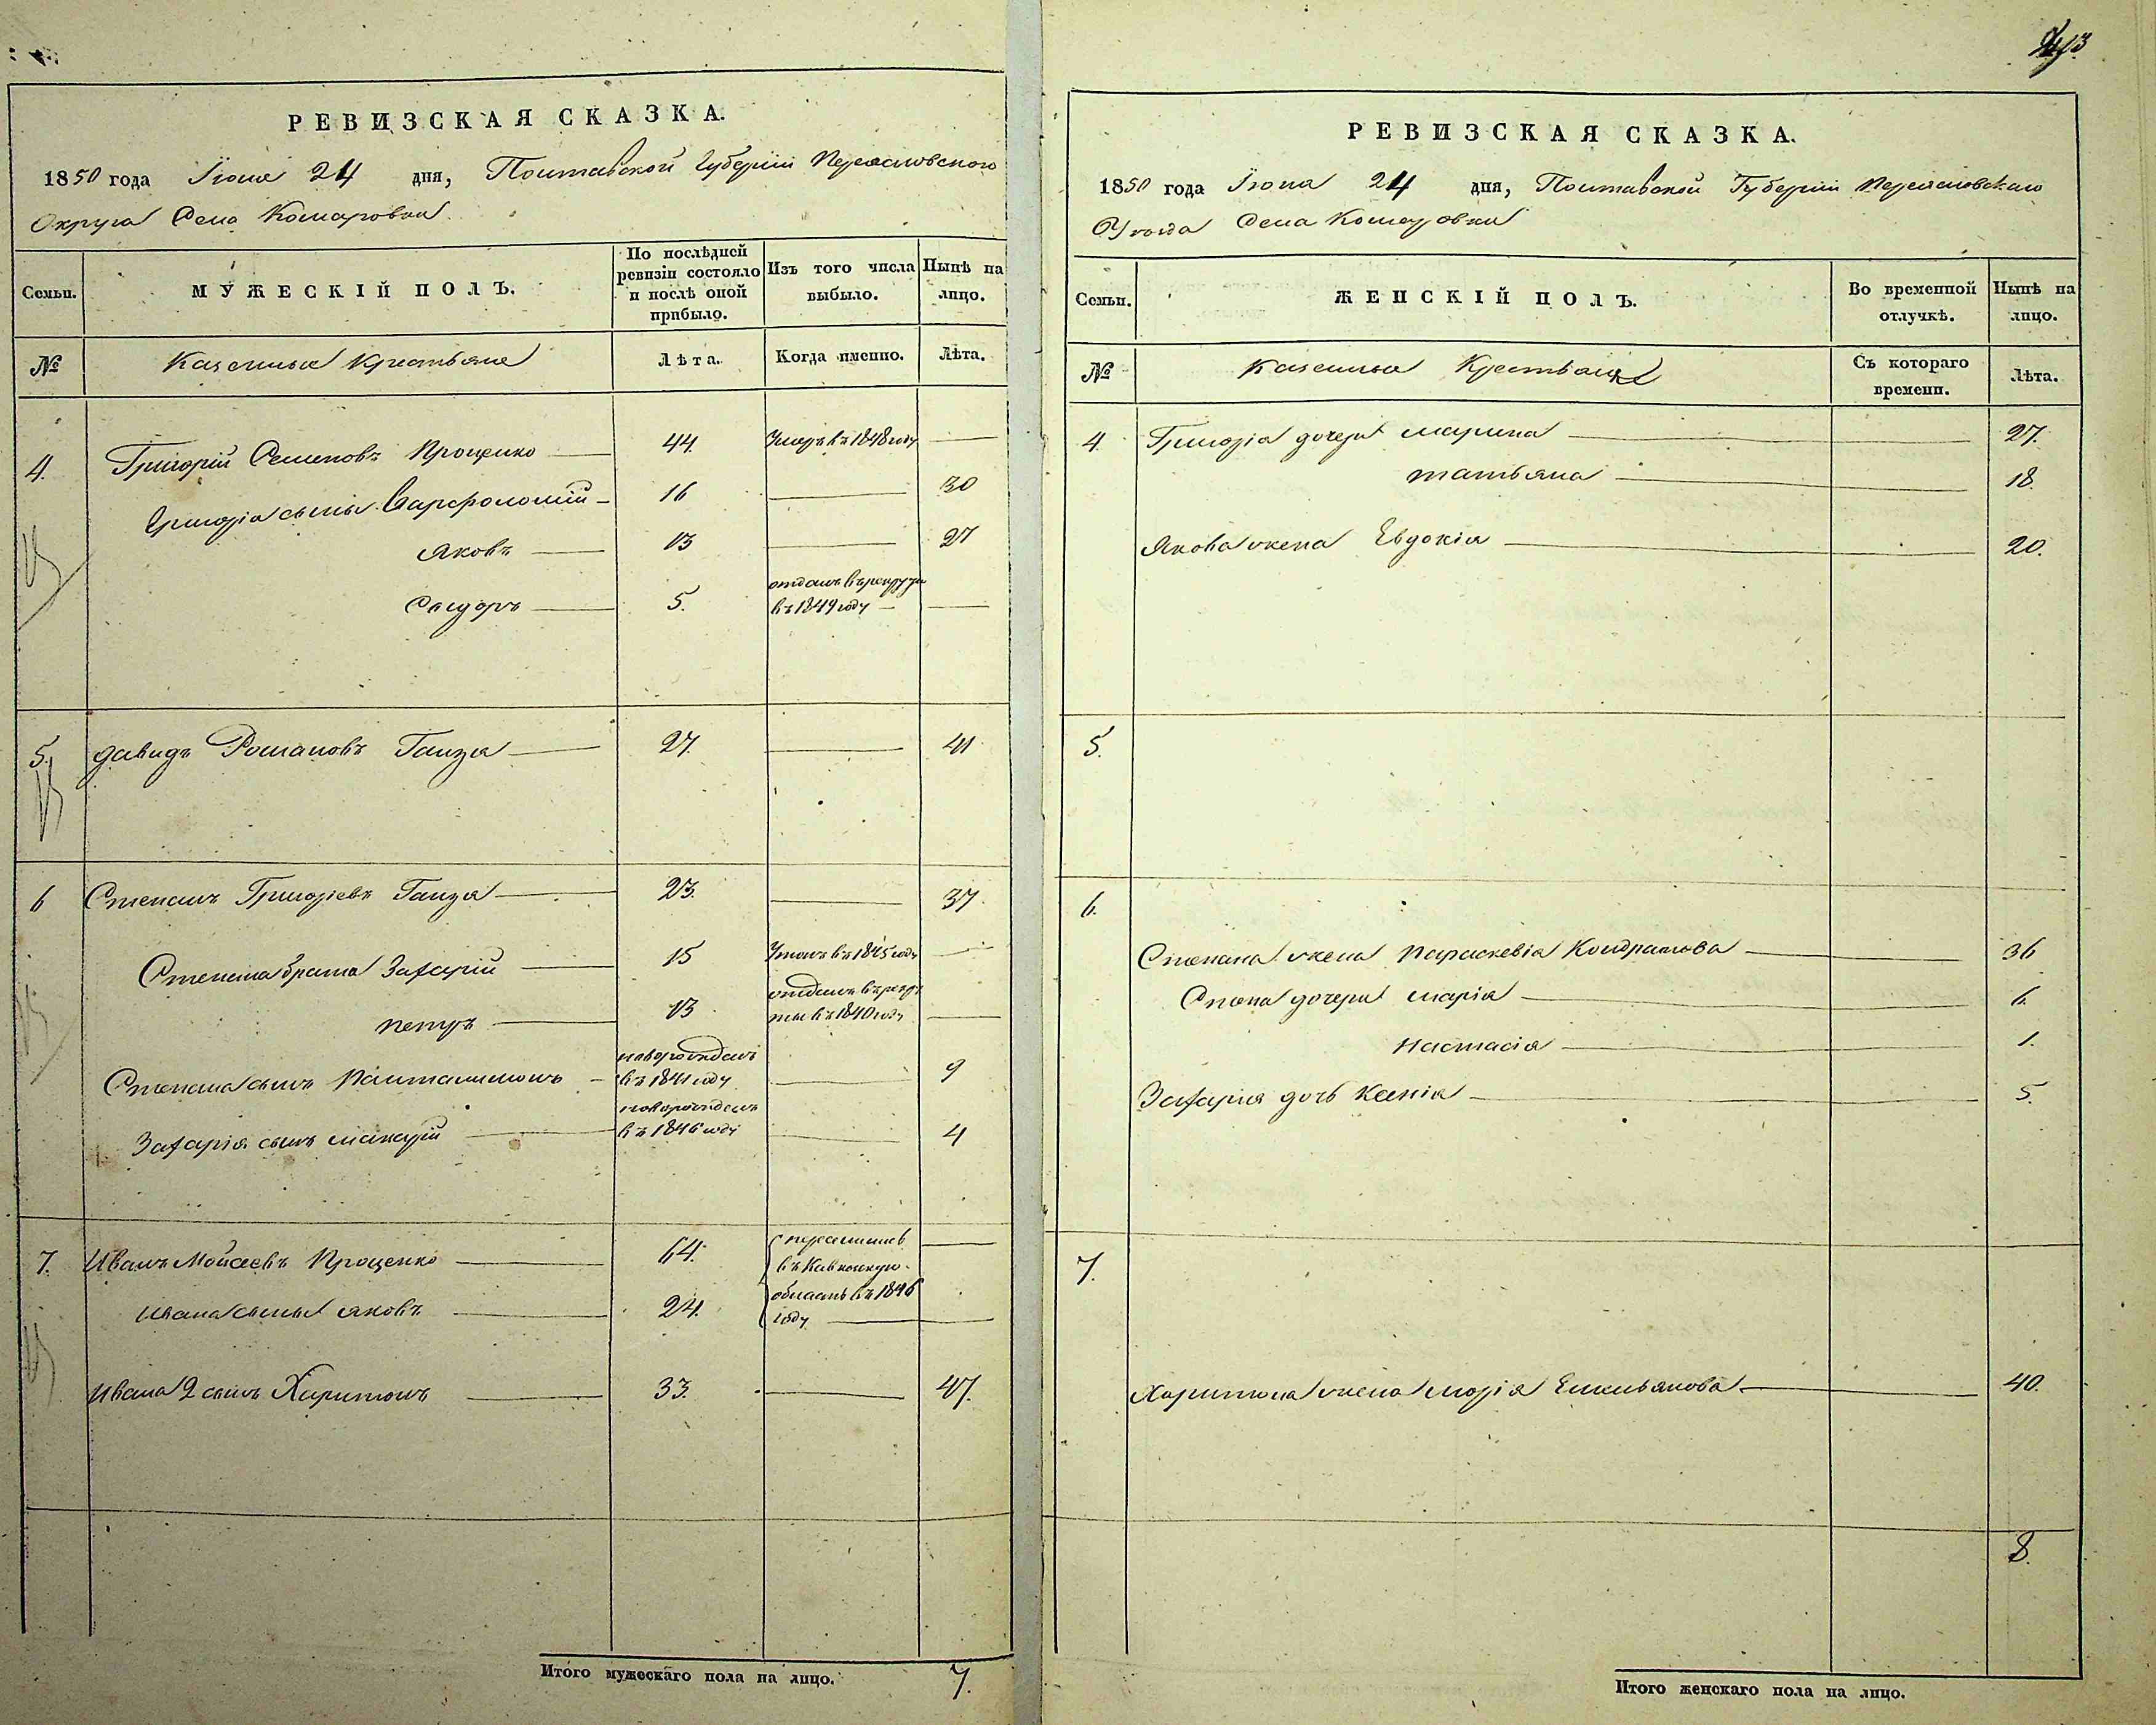 РЕВИЗСКАЯ СКАЗКА.
1850 года Іюня 24 дня, Полтавской Губерніи Переяславского
Округа Села Комаровки
Семьи.
МУЖЕСКІЙ ПОЛЪ.
По послѣдней
ревизіи состояло
и послѣ оной
прибыло.
Изъ того числа
выбыло.
Нынѣ на
лицо.
№
Казенные Крестьяне
Лѣта.
Когда именно.
Лѣта.
4. Григорій Семеновъ Проценко 44. Умеръ въ 1848 году
Григорія сыны Варфоломій 16 30
Яковъ 13 27
Сидоръ 5. отданъ въ рекруты
въ 1849 году
5. Давидъ Романовъ Ганза 27. 41
6 Степанъ Григоріевъ Ганза 23. 37.
Степана братья Захарій 15 въ 1845 году
Петръ 13 отданъ въ рекру
ты въ 1840 году
Степана сынъ Пантелимонъ новорожденъ
въ 1841 году 9
Захарія сынъ Макарій новорожденъ
въ 1846 году 4
7. Иванъ Мойсеевъ Проценко 64. переселились
въ Кавказкую
Ивана сыны Яковъ 24. область въ 1846
году
Ивана 2 сынъ Харитонъ 33. 47.
Итого мужескаго пола на лицо. 7.
РЕВИЗСКАЯ СКАЗКА.
1850 года Іюня 24 дня, Полтавской Губерніи Переяславскаго
Уезда Села Комаровки
Семьи.
ЖЕНСКІЙ ПОЛЪ.
Во временной
отлучкѣ.
Нынѣ на
лицо.
№
Казенные Крестьяне
Съ котораго
времени.
Лѣта.
4 Григорія дочери Марина 27.
Татьяна 18.
Якова жена Евдокія 20.
5.
6.
Степана жена Параскевія Кондратова 36
Степа дочери Марія 6.
Настасія 1.
Захарія дочь Ксенія 5.
7.
Харитона жена Марія Емельянова 40.
8.
Итого женскаго пола на лицо.